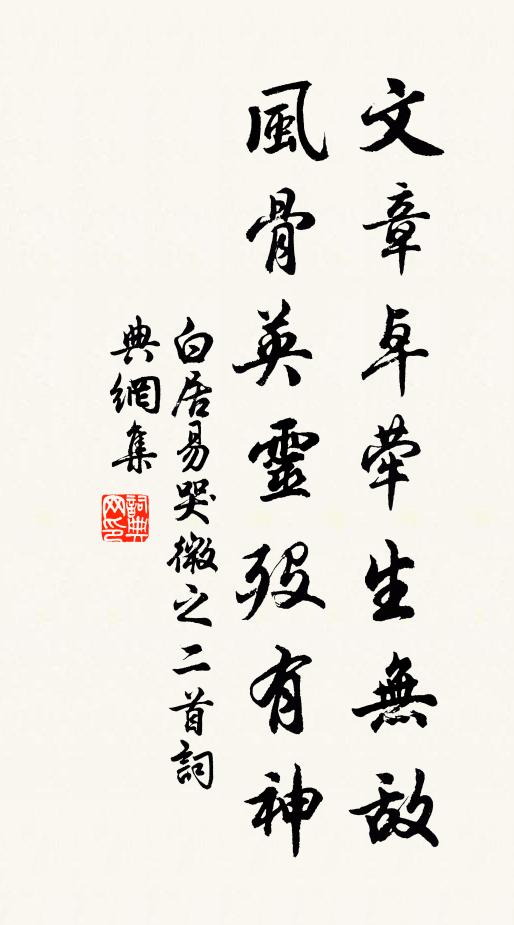 文章卓犖生無敵
風骨英靈歿有神
白居易哭微之二首詞
典網集
詞典网印